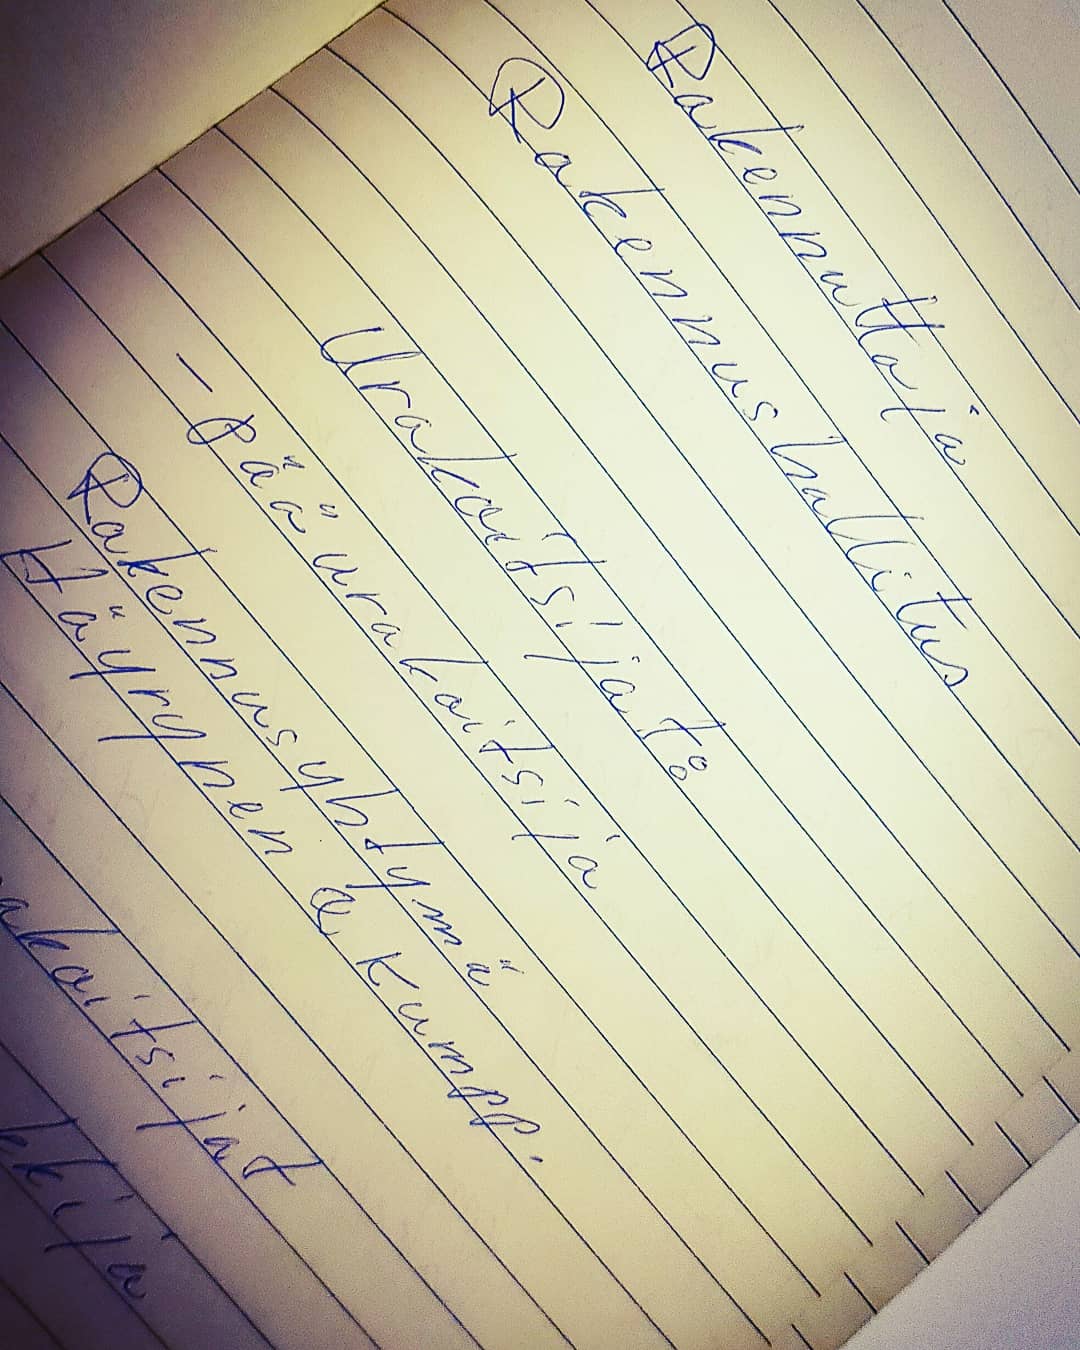 Rakennuttaja
Rakennushallitus
Urakoitsijat:
- Pääurakoitsija
Rakennusyhtymä
Häyrynen & Kumpp.
akoitsijat
kkija